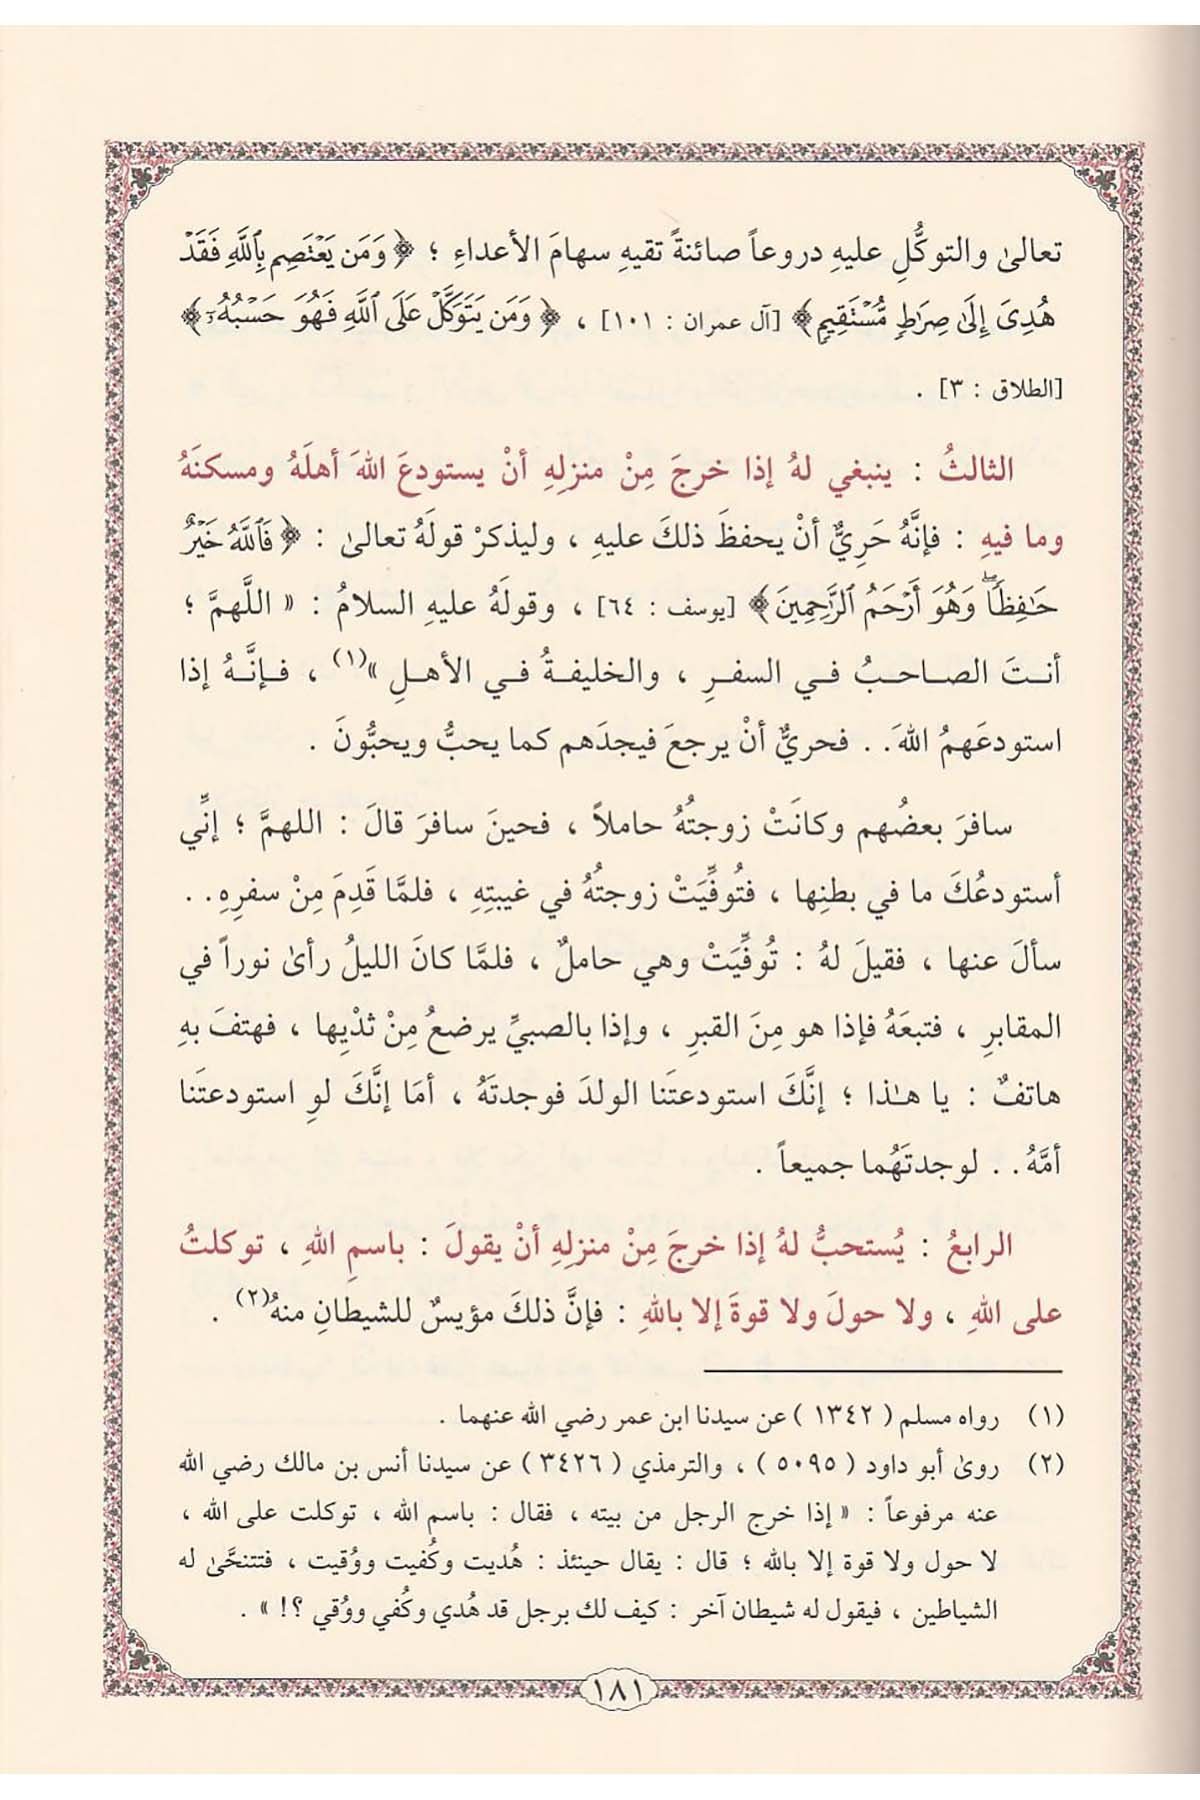 تعالىٰ والتوكُّلِ عليهِ دروعاً صائنةً تقيهِ سهامَ الأعداءِ ؛ ﴿ وَمَن يَعْتَصِم بِٱللَّهِ فَقَدْ
هُدِىَ إِلَىٰ صِرَٰطٍ مُّسْتَقِيمٍ ﴾ [آل عمران : ١٠١] ، ﴿ وَمَن يَتَوَكَّلْ عَلَى ٱللَّهِ فَهُوَ حَسْبُهُۥٓ ﴾
[الطلاق : ٣] .
الثالثُ : ينبغي لهُ إذا خرجَ مِنْ منزلِهِ أنْ يستودعَ اللهَ أهلَهُ ومسكنَهُ
وما فيهِ : فإنَّهُ حَرِيٌّ أنْ يحفظَ ذلكَ عليهِ ، وليذكرْ قولَهُ تعالىٰ : ﴿ فَٱللَّهُ خَيْرٌ
حَٰفِظًاۖ وَهُوَ أَرْحَمُ ٱلرَّٰحِمِينَ ﴾ [يوسف : ٦٤] ، وقولَهُ عليهِ السلامُ : « اللَّهمَّ ؛
أنتَ الصاحبُ في السفرِ ، والخليفةُ في الأهلِ »(١) ، فإنَّهُ إذا
استودعَهمُ اللهَ.. فحريٌّ أنْ يرجعَ فيجدَهم كما يحبُّ ويحبُّونَ .
سافرَ بعضُهم وكانَتْ زوجتُهُ حاملاً ، فحينَ سافرَ قالَ : اللهمَّ ؛ إنِّي
أستودعُكَ ما في بطنِها ، فتُوفِّيَتْ زوجتُهُ في غيبتِهِ ، فلمَّا قَدِمَ مِنْ سفرِهِ..
سألَ عنها ، فقيلَ لهُ : تُوفِّيَتْ وهي حاملٌ ، فلمَّا كانَ الليلُ رأىٰ نوراً في
المقابرِ ، فتبعَهُ فإذا هو مِنَ القبرِ ، وإذا بالصبيِّ يرضعُ مِنْ ثدْيِها ، فهتفَ بهِ
هاتفٌ : يا هـٰذا ؛ إنَّكَ استودعتَنا الولدَ فوجدتَهُ ، أمَا إنَّكَ لوِ استودعتَنا
أمَّهُ.. لوجدتَهُما جميعاً .
الرابعُ : يُستحبُّ لهُ إذا خرجَ مِنْ منزلِهِ أنْ يقولَ : باسمِ اللهِ ، توكلتُ
على اللهِ ، ولا حولَ ولا قوةَ إلا باللهِ : فإنَّ ذلكَ مؤيسٌ للشيطانِ منهُ(٢) .
(١) رواه مسلم ( ١٣٤٢ ) عن سيدنا ابن عمر رضي الله عنهما .
(٢) روىٰ أبو داود ( ٥٠٩٥ ) ، والترمذي ( ٣٤٢٦ ) عن سيدنا أنس بن مالك رضي الله
عنه مرفوعاً : « إذا خرج الرجل من بيته ، فقال : باسم الله ، توكلت على الله ،
لا حول ولا قوة إلا بالله ؛ قال : يقال حينئذ : هُديت وكُفيت ووُقيت ، فتتنحَّىٰ له
الشياطين ، فيقول له شيطان آخر : كيف لك برجل قد هُدي وكُفي ووُقي ؟! » .
١٨١